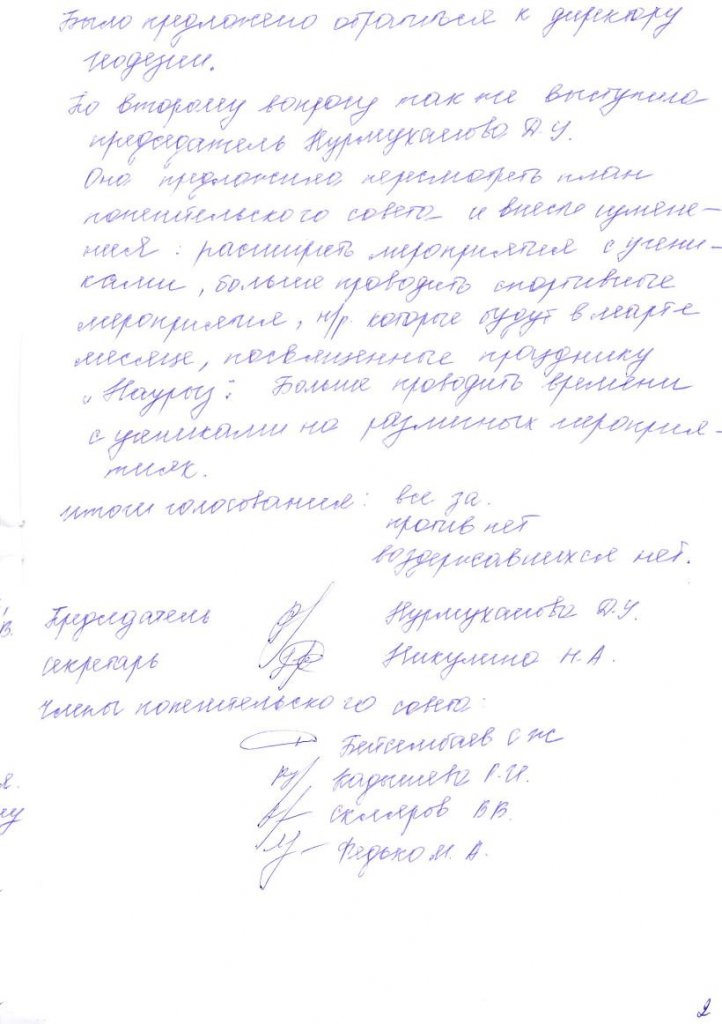 Было предложено обратиться к директору
геодезии.
По второму вопросу так же выступила
председатель Нурмуханова Д.У.
Она предложила пересмотреть план
попечительского совета и внести измене-
ния: расширить мероприятия с учени-
ками, больше проводить спортивные
мероприятия, н/р. которые будут в марте
месяце, посвященные празднику
„Наурыз". Больше проводить времени
с учениками на различных мероприя-
тиях.
итоги голосования: все за.
против нет
воздержавшихся нет.
Председатель Нурмуханова Д.У.
секретарь Никулина Н.А.
Члены попечительского совета:
Бейсембаев С Ж
Кадышева Р.И.
Скляров В В.
Федько М. А.
В.
я.
му
2